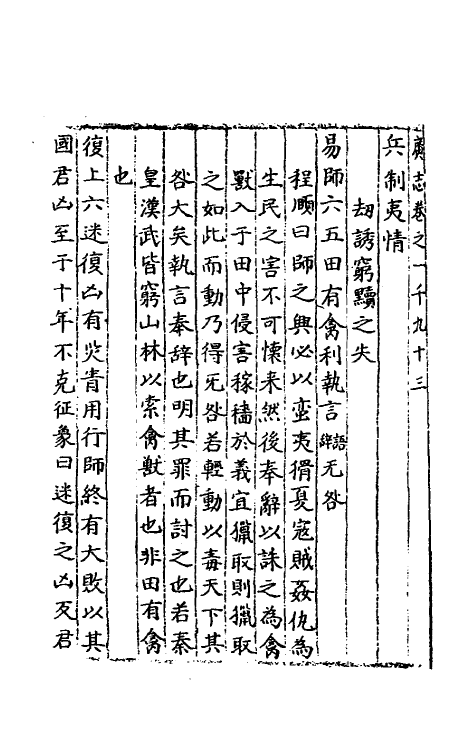 廣志卷之一千九十三
兵制夷情
刼誘窮黷之失
易師六五田有禽利執言語辭无咎
程頤曰師之興必以蠻夷猾夏寇賊姦仇為
生民之害不可懷來然後奉辭以誅之為禽
獸入于田中侵害稼穡於義宜獵取則獵取
之如此而動乃得无咎若輕動以毒天下其
咎大矣執言奉辞也明其罪而討之也若秦
皇漢武皆窮山林以索禽獸者也非田有禽
也
復上六迷復凶有災眚用行師終有大敗以其
國君凶至于十年不克征象曰迷復之凶反君